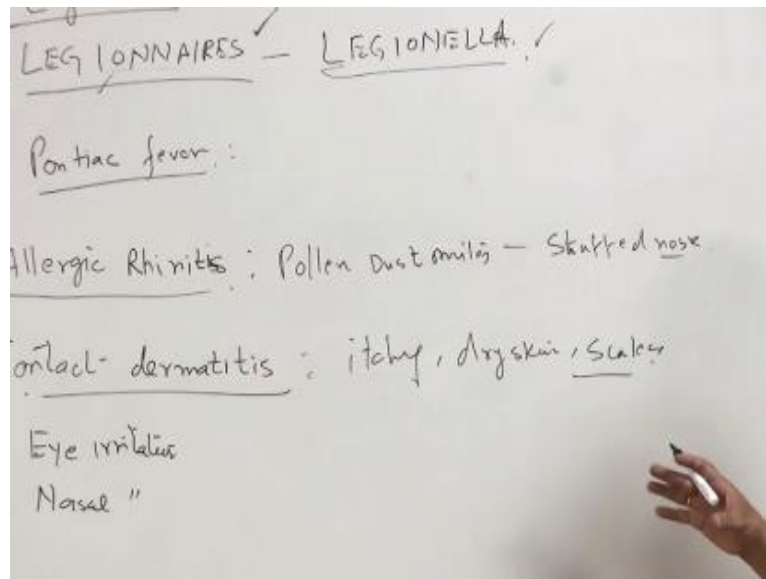 LEGIONNAIRES – LEGIONELLA.
Pontiac fever :
Allergic Rhinitis : Pollen Dust mites – Stuffed nose
ontact- dermatitis : itchy, dry skin, scales
Eye irritation
Nasal "